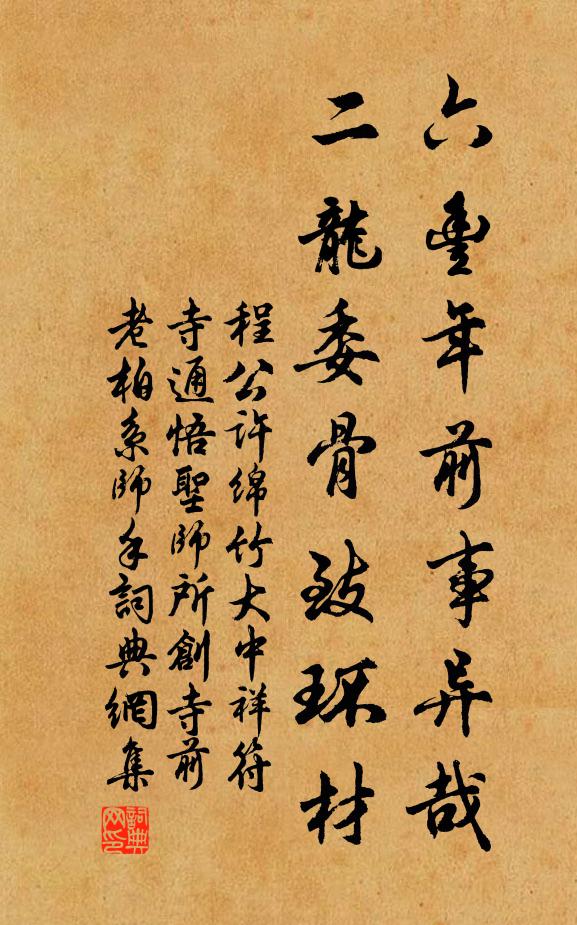 六豐年前事异哉
二龍委骨致環材
程公许绵竹大中祥符
寺通悟聖师所創寺前
老柏系师手詞典網集
詞典网印